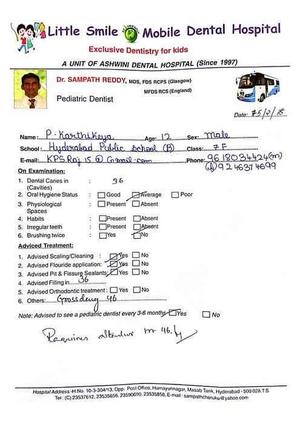 Little Smile Mobile Dental Hospital
Exclusive Dentistry for kids
A UNIT OF ASHWINI DENTAL HOSPITAL (Since 1997)
Dr. SAMPATH REDDY, MDS, FDS RCPS (Glasgow)
MFDS RCS (England)
Pediatric Dentist
Date:
Name: P. Karthikeya Age: 12 Sex: male
School: Hyderabad Public School (B) Class: 7F
E-mail: KPSRaj15@Gmail.com Phone: 9618034424(m)
9246374699
On Examination:
1. Dental Caries in : 36
(Cavities)
2. Oral Hygiene Status : Good Average Poor
3. Physiological : Present Absent
Spaces
4. Habits : Present Absent
5. Irregular teeth : Present Absent
6. Brushing twice : Yes No
Adviced Treatment:
1. Advised Scaling/Cleaning : Yes No
2. Advised Flouride application: Yes No
3. Advised Pit & Fissure Sealants Yes No
4. Advised Filling in 36
5. Advised Orthodontic treatment : Yes No
6. Others: 46
Note: Advised to see a pediatric dentist every 3-6 months Yes No
Requires 46
Hospital Address: H.No. 10-3-304/13, Opp. Post Office, Humayunnagar, Masab Tank, Hyderabad - 500 028 T.S.
Tel: (C) 23537612, 23535656, 23590670, 23535858, E-mail: sampathcheruku@yahoo.com